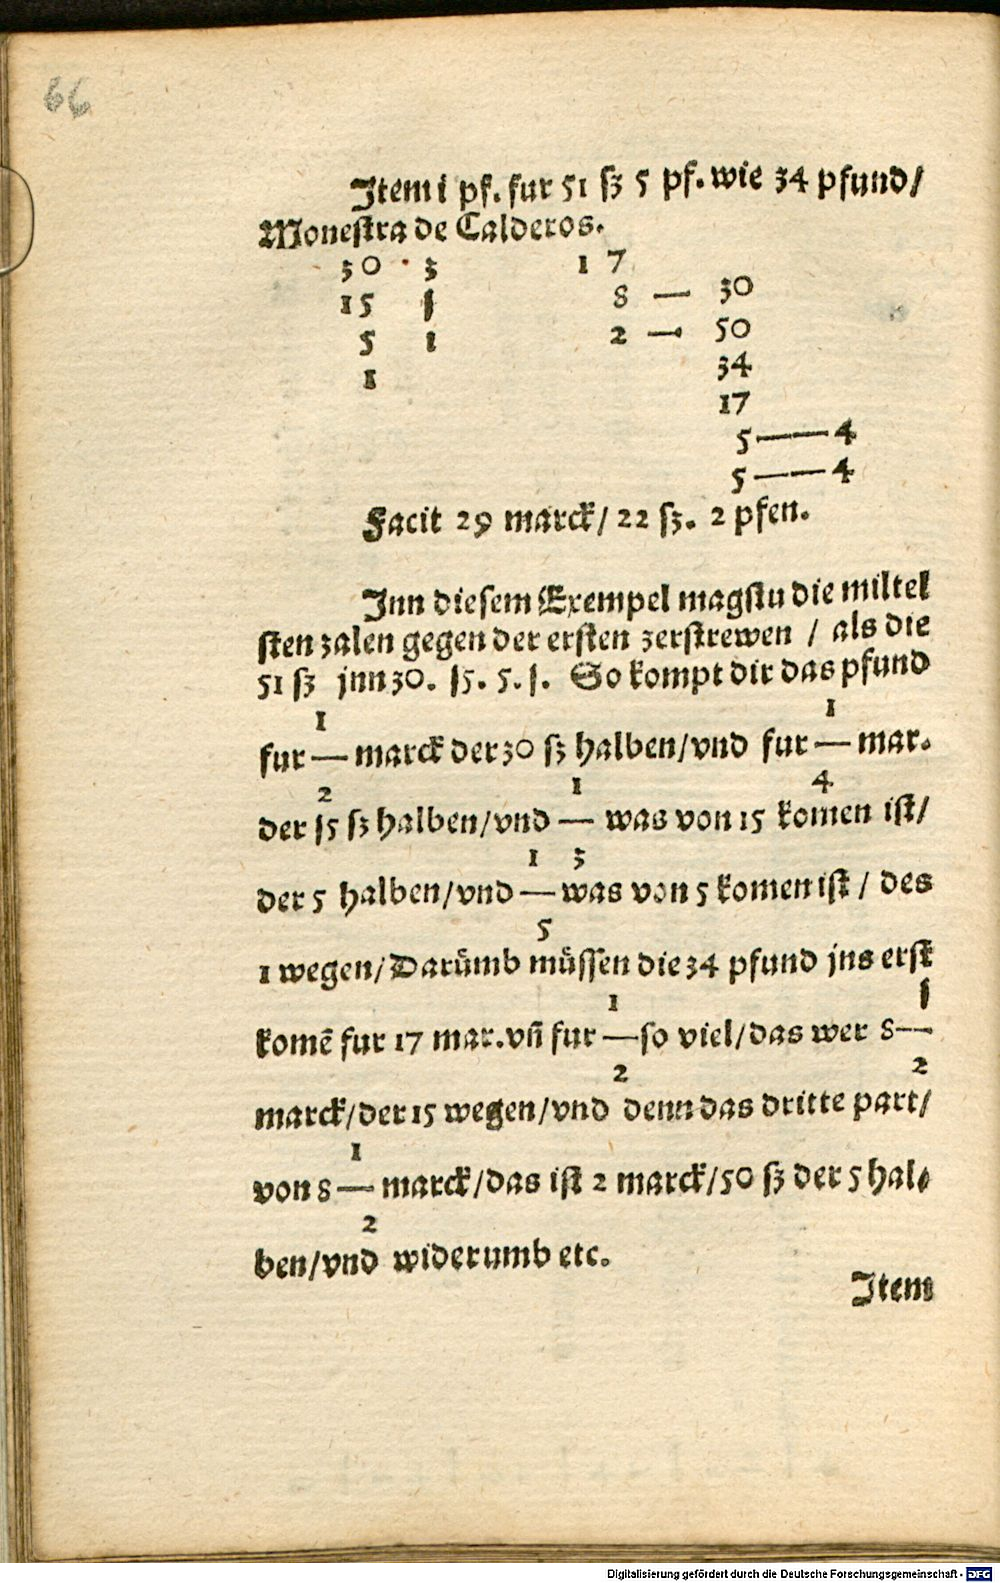 66
Item 1 pf. fur 51 ſʒ 5 pf. wie 34 pfund/
Moneſtra de Calderos.
30 · 3 1 7
15 1 8 — 30
5 1 2 — 50
1 34
17
5 —— 4
5 —— 4
Facit 29 marck/ 22 ſʒ. 2 pfen.
Inn dieſem Exempel magſtu die miltel
ſten zalen gegen der erſten zerſtrewen / als die
51 ſʒ jnn 30. 15. 5. 1. So kompt dir das pfund
1 1
fur — marck der 30 ſʒ halben/vnd fur — mar.
2 1 4
der 15 ſʒ halben/vnd — was von 15 komen iſt/
1 3
der 5 halben/vnd — was von 5 komen iſt / des
5
1 wegen/Darümb müſſen die 34 pfund jns erſt
1 1
komẽ fur 17 mar.vñ fur — ſo viel/das wer 8 —
2 2
marck/der 15 wegen/vnd denn das dritte part/
1
von 8 — marck/das iſt 2 marck/50 ſʒ der 5 hal⸗
2
ben/vnd widerumb etc.
Item
Digitalisierung gefördert durch die Deutsche Forschungsgemeinschaft - DFG